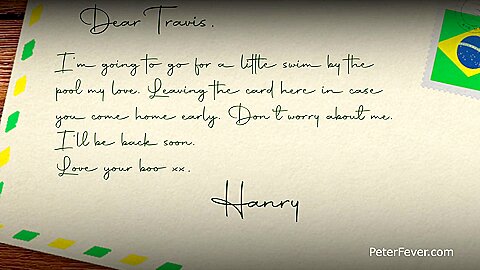 Dear Travis.
I'm going to go for a little swim by the
pool my love. Leaving the card here in case
you come home early. Don't worry about me.
I'll be back soon.
Love your boo xx.
Hanry
PeterFever.com